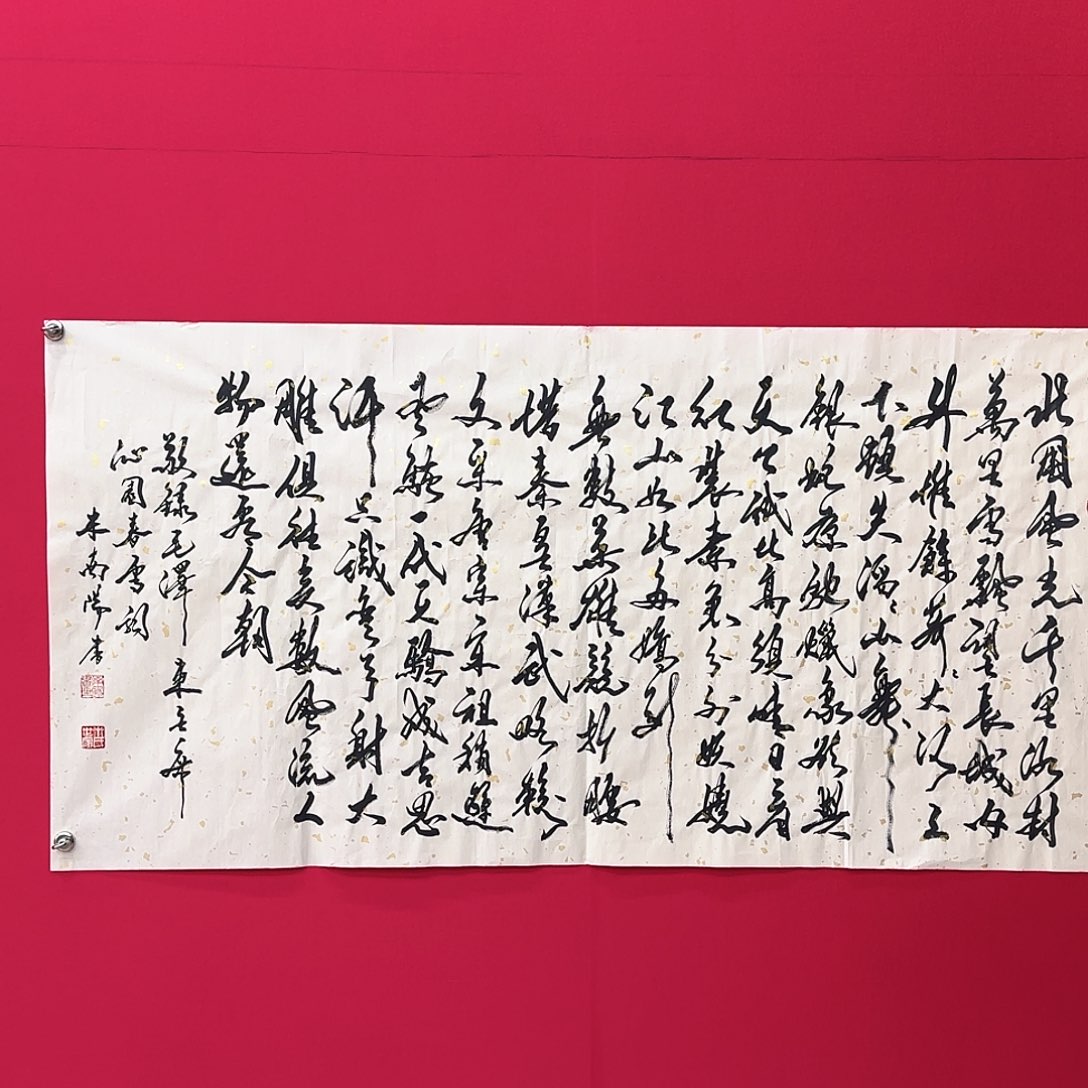 北國風光千里冰封
萬里雪飄望長城內
外惟餘莽莽大河上
下頓失滔滔山舞
銀蛇原馳蠟象欲與
天公試比高須晴日看
紅裝素裹分外妖嬈
江山如此多嬌引
無數英雄競折腰
惜秦皇漢武略輸
文采唐宗宋祖稍遜
風騷一代天驕成吉思
汗只識彎弓射大
雕俱往矣數風流人
物還看今朝
敬錄毛澤東主席
沁園春雪詞
陽書